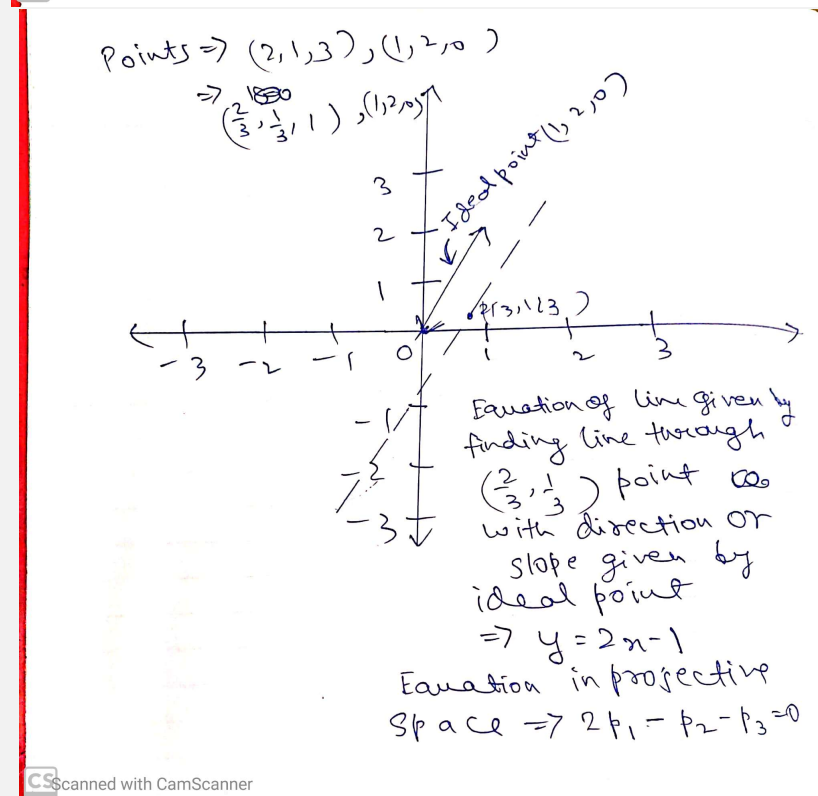 Points => (2,1,3), (1,2,0)
=> (2/3, 1/3, 1), (1,2,0)
Ideal point (1,2,0)
3
2
1
(2/3, 1/3)
-3 -2 -1 0 1 2 3
-1
-2
-3
Equation of line given by
finding line through
(2/3, 1/3) point
with direction or
slope given by
ideal point
=> y = 2x-1
Equation in projective
space => 2p₁ - p₂ - p₃ = 0
CS Scanned with CamScanner